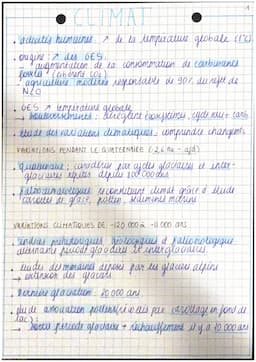 CLIMAT
• activités humaines : ↗ de la température globale (1°C)
• origine : ↗ des GES.
augmentation de la consommation de carburants
fossiles (charbons CO2)
→ agriculture moderne responsable de 90% du rejet de
N2O
• GES ↗ température globale
→ bouleversements : écosystèmes, cycle eau + carb
• étude des variations climatiques : comprendre changemts
VARIATIONS PENDANT LE QUATERNAIRE (-2,6 Ma - ajd)
• quaternaire : caractérisé par cycles glaciaires et inter-
glaciaires répétés depuis 800 000 ans
• paléoclimatologues reconstituent climat grâce à étude
carottes de glace, pollen, sédiments marins
VARIATIONS CLIMATIQUES DE -120 000 à -11 000 ans
• préhistoriques
alternance période glaciaire et interglaciaire.
• études des moraines déposés par les glaciers alpins
→ extension des glaciers
• Dernière glaciation : 20 000 ans
• étude en fond de
lac) :
→ période glaciaire + réchauffement il y a 10 000 ans